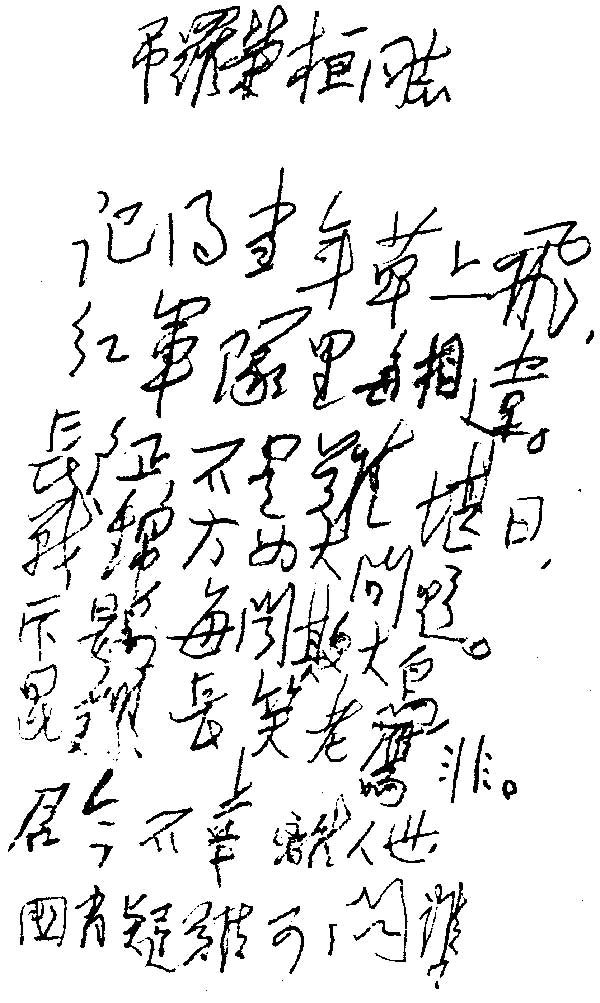 吊羅榮桓同志
记得當年草上飛，
红軍隊里每相違。
長征不是難堪日，
戰錦方为大問題。
斥鷃每聞欺大鳥
昆鷄長笑老鷹非。
君今不幸離人世
國有疑難可問誰？